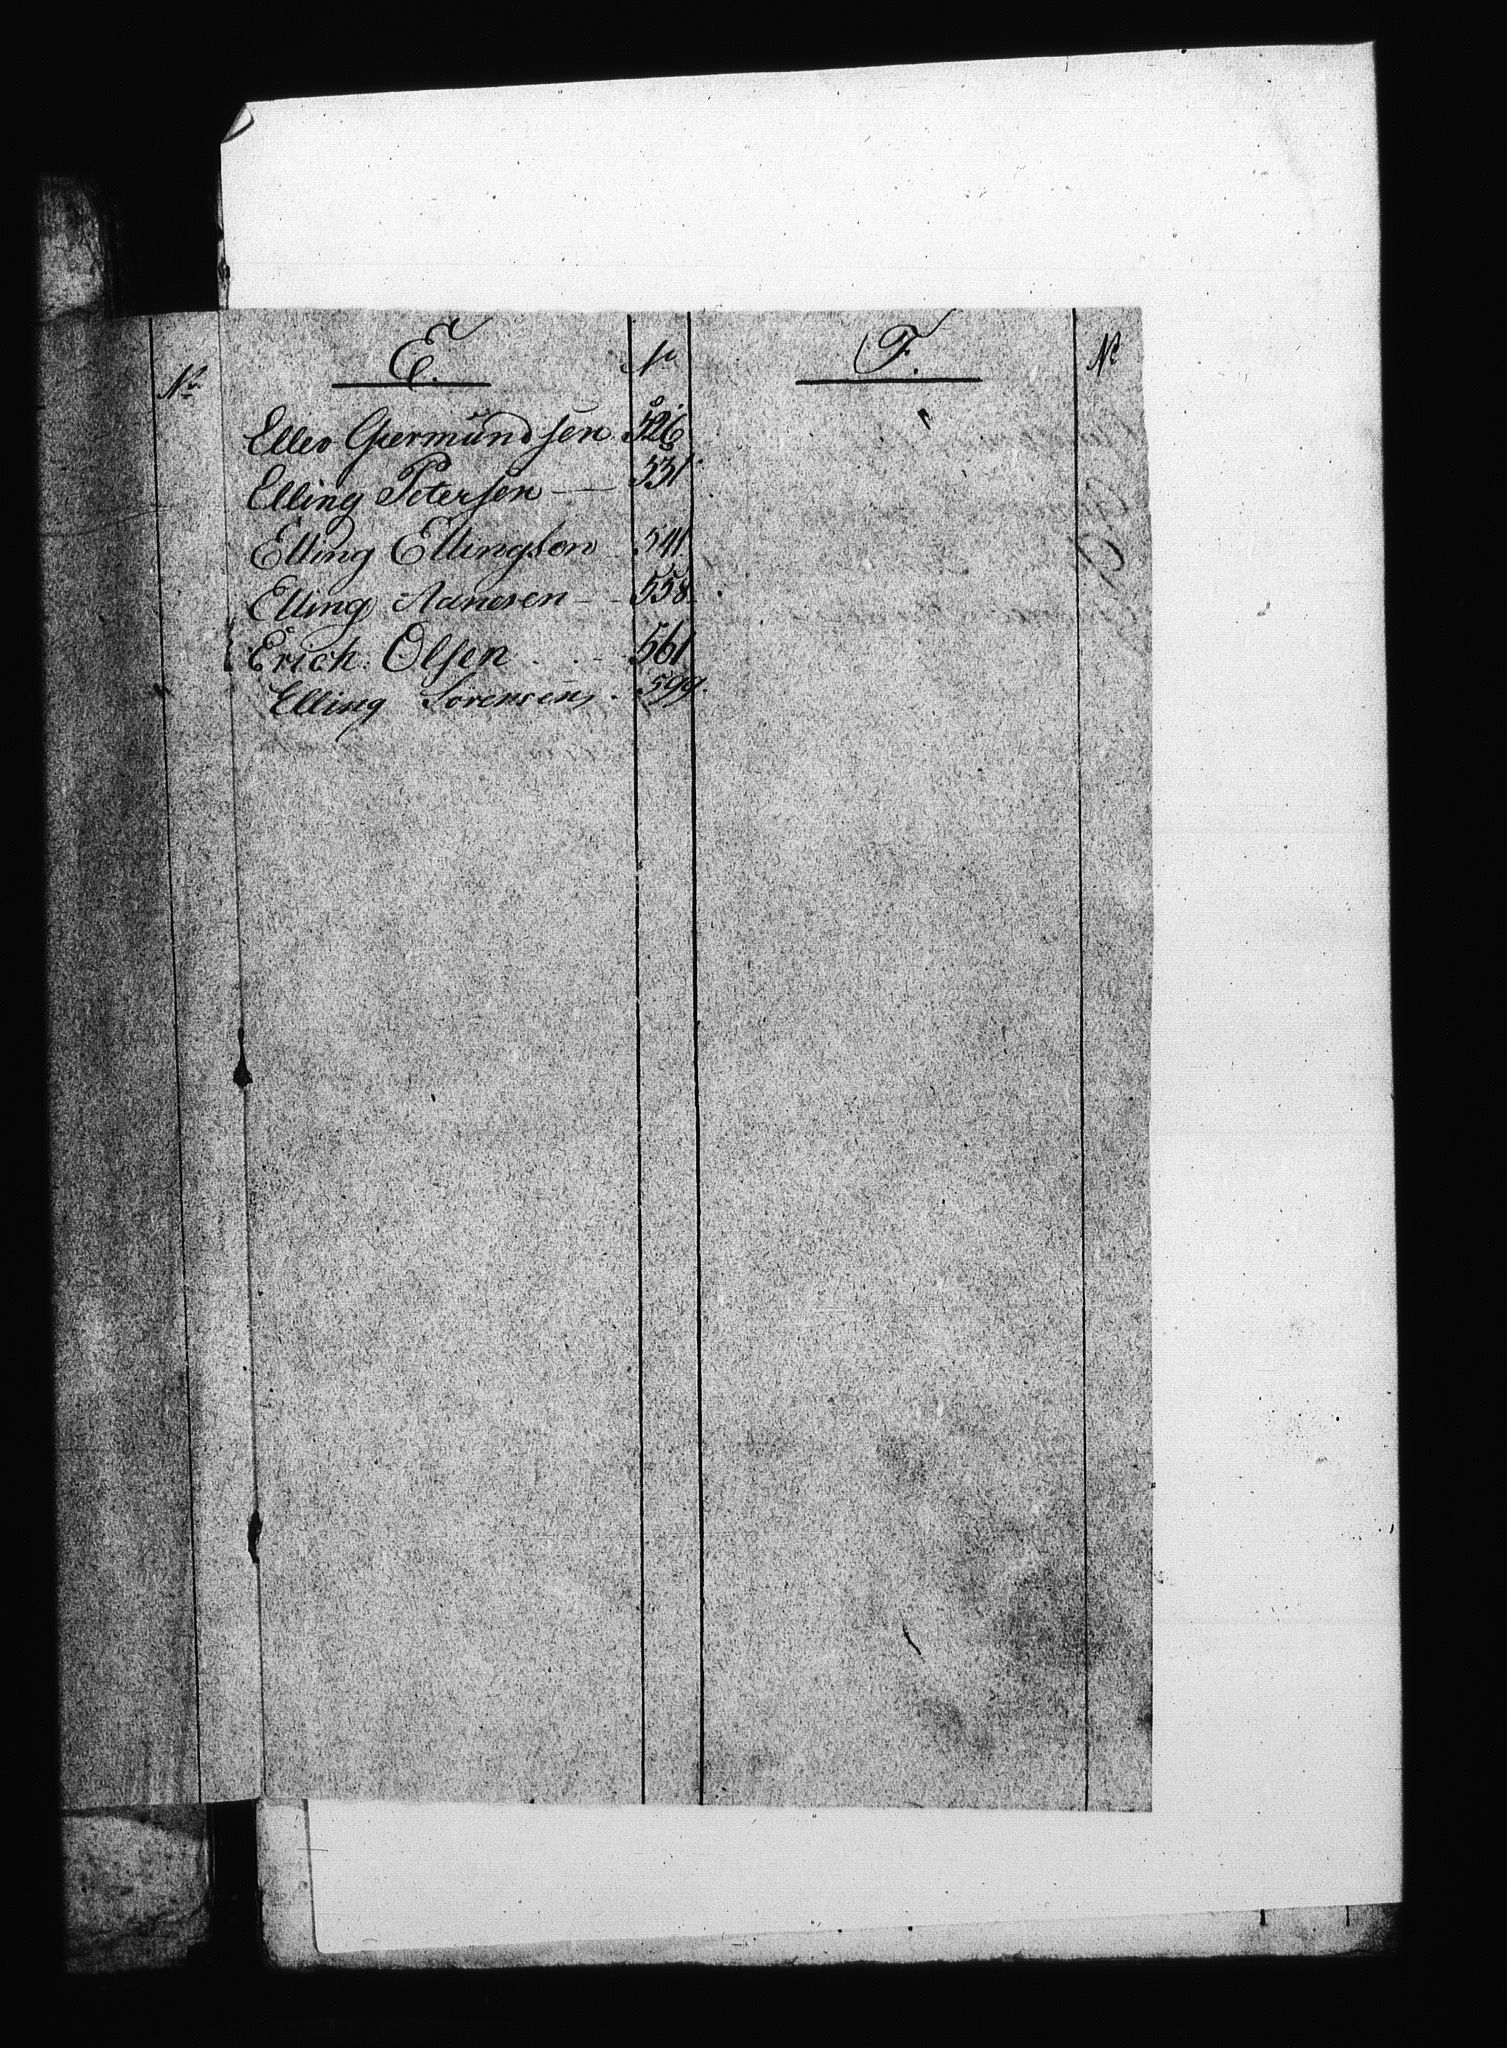 No
E. No
Elles Giermundsen 526
Elling Petersen 531
Elling Ellingsen 541
Elling Aanesen 558
Erich Olsen 561
Elling Sørensen 599.
F. No